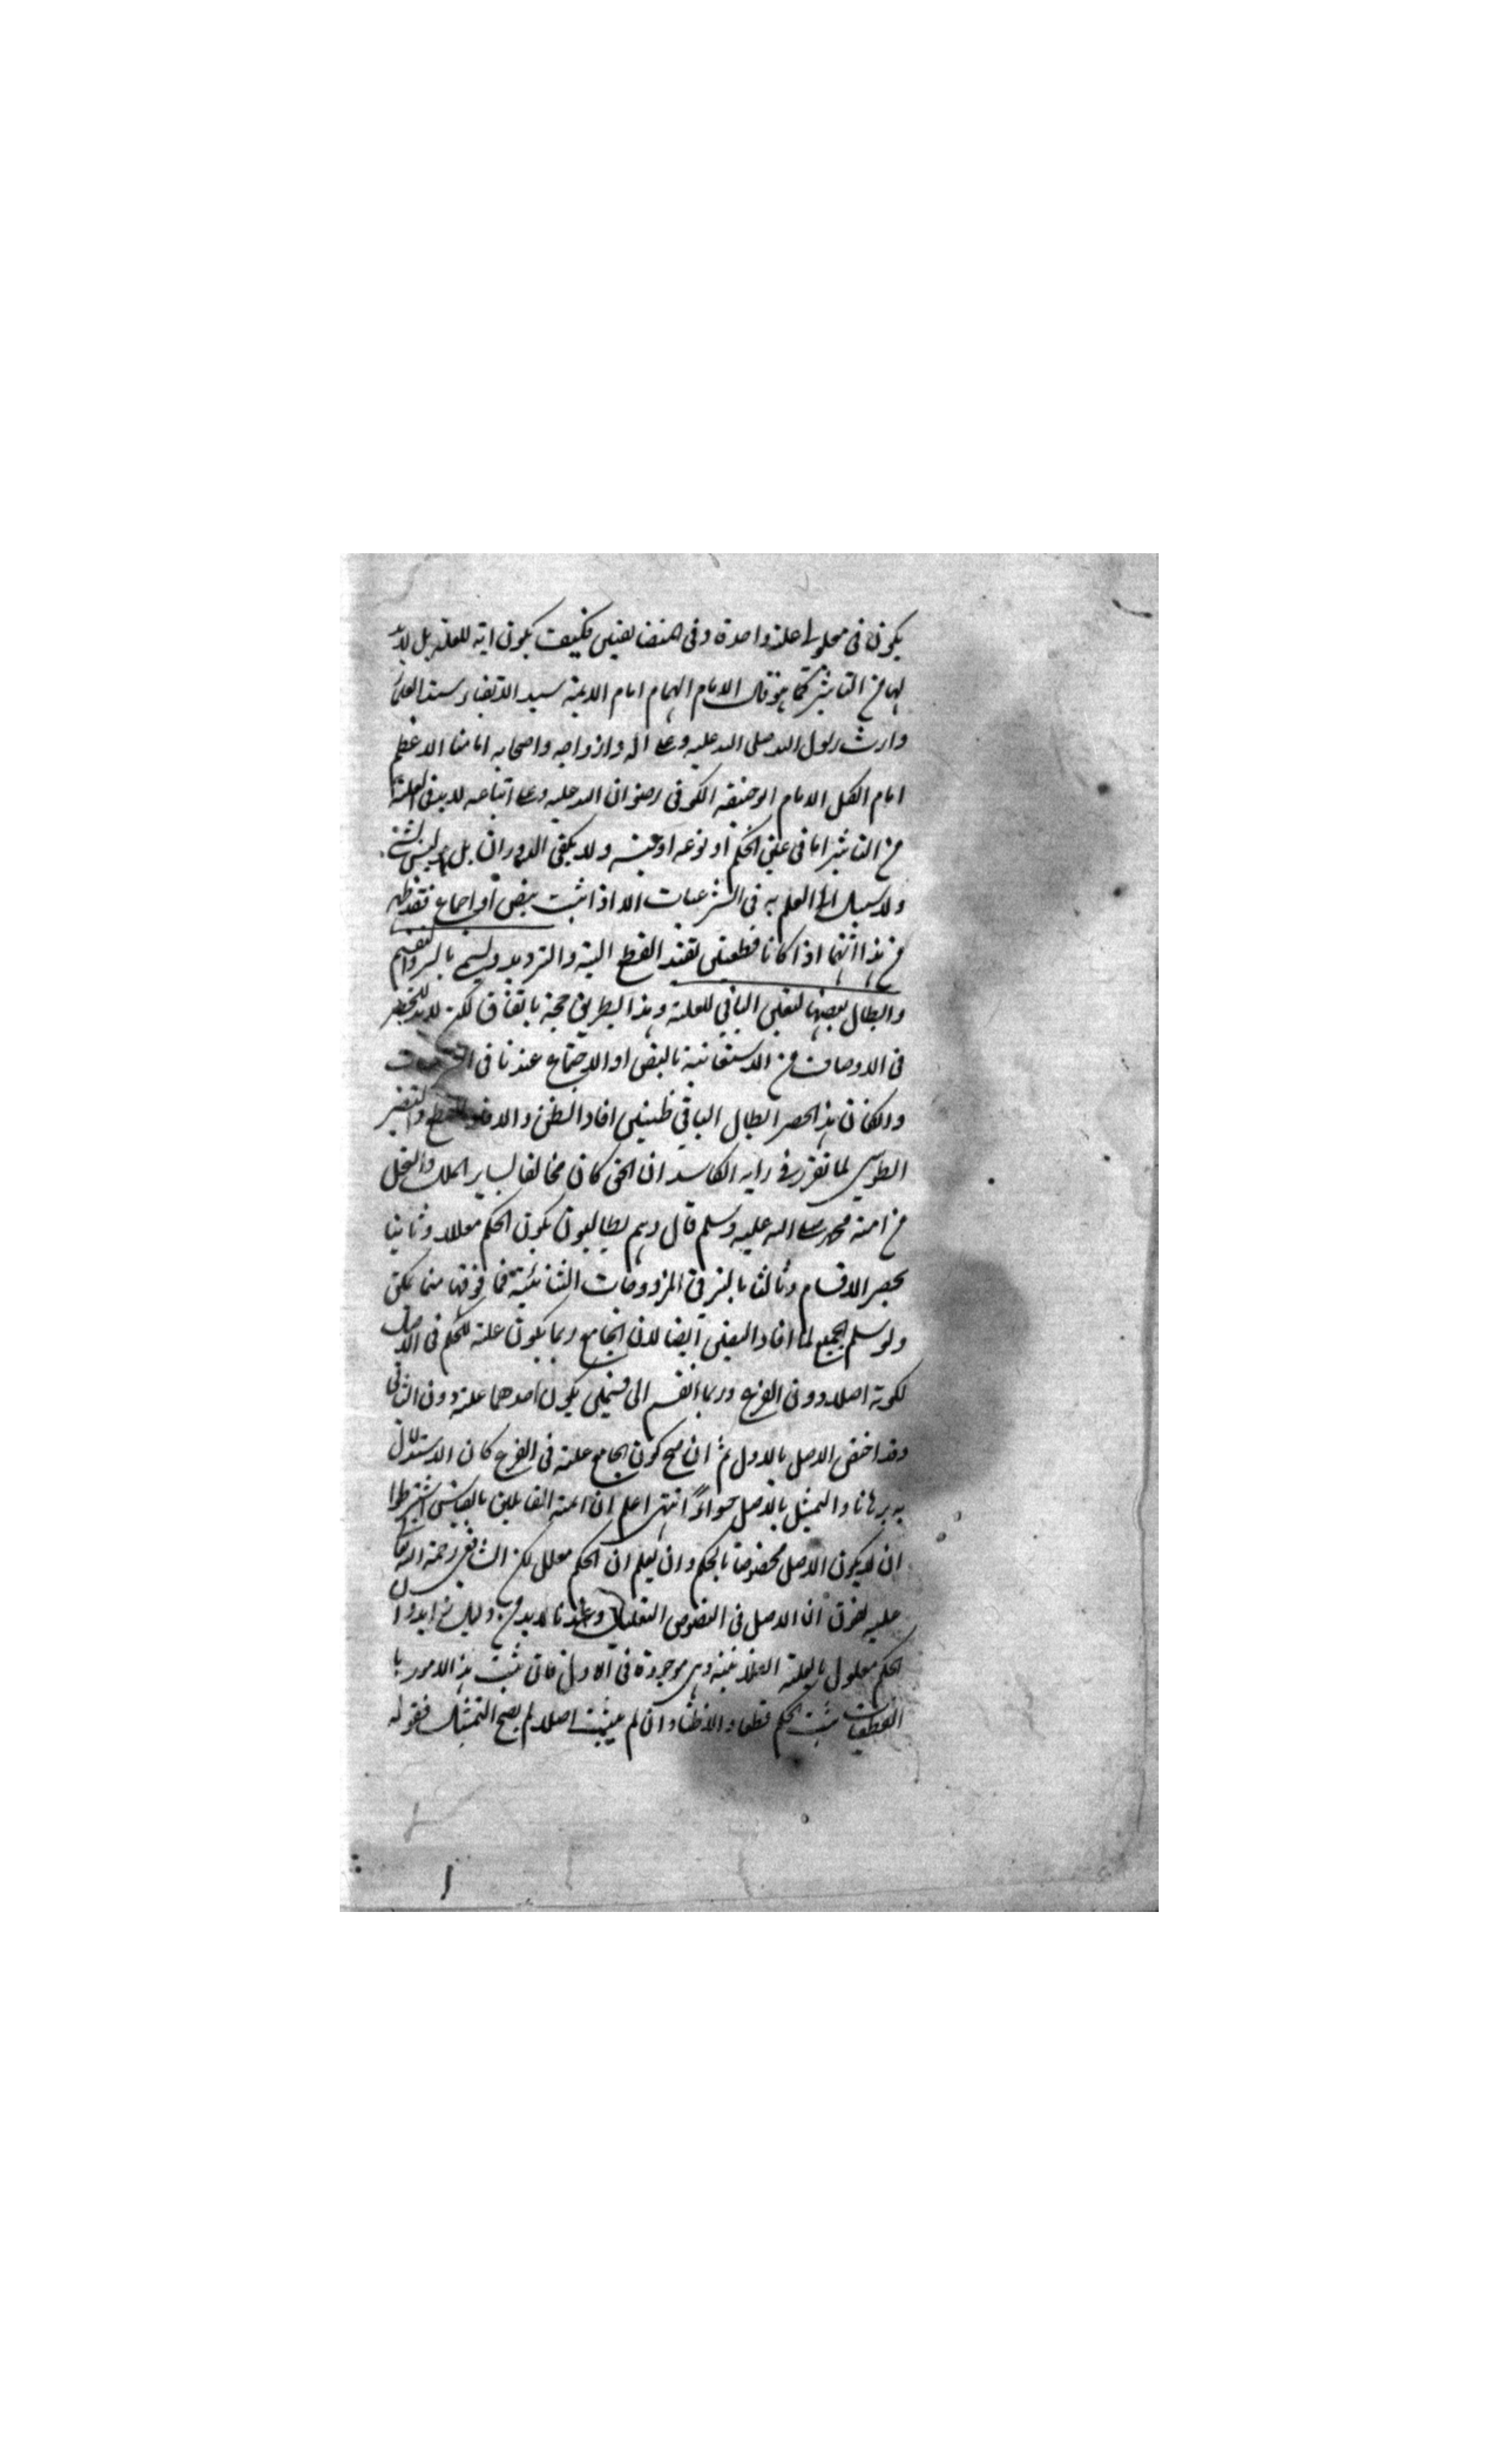 يكون في معلولي علة واحدة وفي المتضايفين فكيف يكون اية للعلية بل لابد
لها من التاثير كما هو قال الامام الهمام امام الائمة سيد الاتقياء سند العلماء
وارث رسول الله صلى الله عليه وعلى اله وازواجه واصحابه امامنا الاعظم
امام الكل الامام ابو حنيفة الكوفي رضوان الله عليه وعلى اتباعه لابد في العلية
من التاثير اما في عين الحكم او نوعه او جنسه ولا يكفي الدوران بل ليس بشئ
ولا سبيل الى العلم به في الشرعيات الا اذا ثبت بنص او اجماع فقد ظهر
من هذا انهما اذا كانا قطعيتين تفيد القطع البتة والترديد ويسمى بالسبر والتقسيم
وابطال بعضها لتعين الباقي للعلية وهذا الطريق حجة باتفاق لكن لابد للحصر
في الاوصاف من الاستعانة بالنص او الاجماع عندنا في
والكان هذا الحصر ابطال الباقي ظنيين افاد الظن والا والنصير
الطوسي لما تقرر في رايه الكاسد ان الحق كان مخالفا لساير الملل والنحل
من امة محمد صلى الله عليه وسلم قال وهم يطالبون بكون الحكم معللا وثانيا
بحصر الاقسام وثالثا بالسبر في المزدوجات الثنائية فما فوقها مما يمكن
ولو سلم الجميع لما افاد اليقين ايضا لان الجامع ربما يكون علة للحكم في الاصل
لكونه اصلا دون الفرع وربما انقسم الى قسمين يكون احدهما علة دون الثاني
وقد اختص الاصل بالاول ثم ان صح كون الجامع علة في الفرع كان الاستدلال
به برهانا والتمثيل بالاصل حشوا انتهى اعلم ان ائمة القائلين بالقياس اشترطوا
ان لا يكون الاصل مخصوصا بالحكم وان يعلم ان الحكم معلل لكن الشافعي رحمة الله تعالى
عليه يفرق ان الاصل في النصوص التعليل وعندنا لابد من دليل ان
الحكم معلول بالعلة الفلانية وهي موجودة في الاول فان ثبت هذا الامور با
القطعيات يثبت الحكم قطعا والا ظنا وان لم يثبت اصلا لم يصح التمثيل فقوله